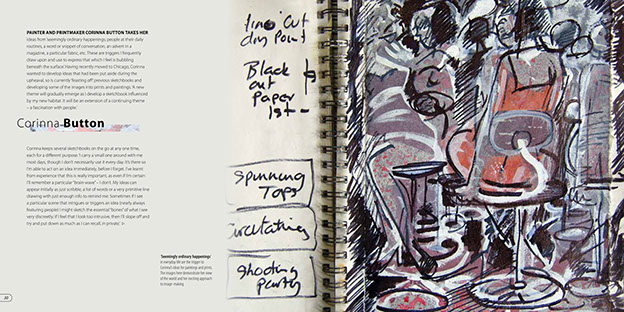 PAINTER AND PRINTMAKER CORINNA BUTTON TAKES HER
ideas from 'seemingly ordinary happenings; people at their daily
routines, a word or snippet of conversation, an advert in
a magazine, a particular fabric, etc. These are triggers I frequently
draw upon and use to express that which I feel is bubbling
beneath the surface.' Having recently moved to Chicago, Corinna
wanted to develop ideas that had been put aside during the
upheaval, so is currently 'feasting off' previous sketchbooks and
developing some of the images into prints and paintings. 'A new
theme will gradually emerge as I develop a sketchbook influenced
by my new habitat. It will be an extension of a continuing theme
– a fascination with people.'
Corinna Button
Corinna keeps several sketchbooks on the go at any one time,
each for a different purpose. 'I carry a small one around with me
most days, though I don't necessarily use it every day. It's there so
I'm able to act on an idea immediately, before I forget. I've learnt
from experience that this is really important, as even if I'm certain
I'll remember a particular "brain-wave" – I don't. My ideas can
appear initially as just scribble, a list of words or a very primitive line
drawing with just enough info to remind me. Sometimes if I see
a particular scene that intrigues or triggers an idea (nearly always
featuring people) I might sketch the essential "bones" of what I see
very discreetly; if I feel that I look too intrusive, then I'll slope off and
try and put down as much as I can recall, in private.' >
'Seemingly ordinary happenings'
in everyday life are the trigger to
Corinna's ideas for paintings and prints.
The images here demonstrate her view
of the world and her exciting approach
to image-making.
30
lino cut
dry point
Black
out
paper
1st –
Spinning
Tops
Shooting
party